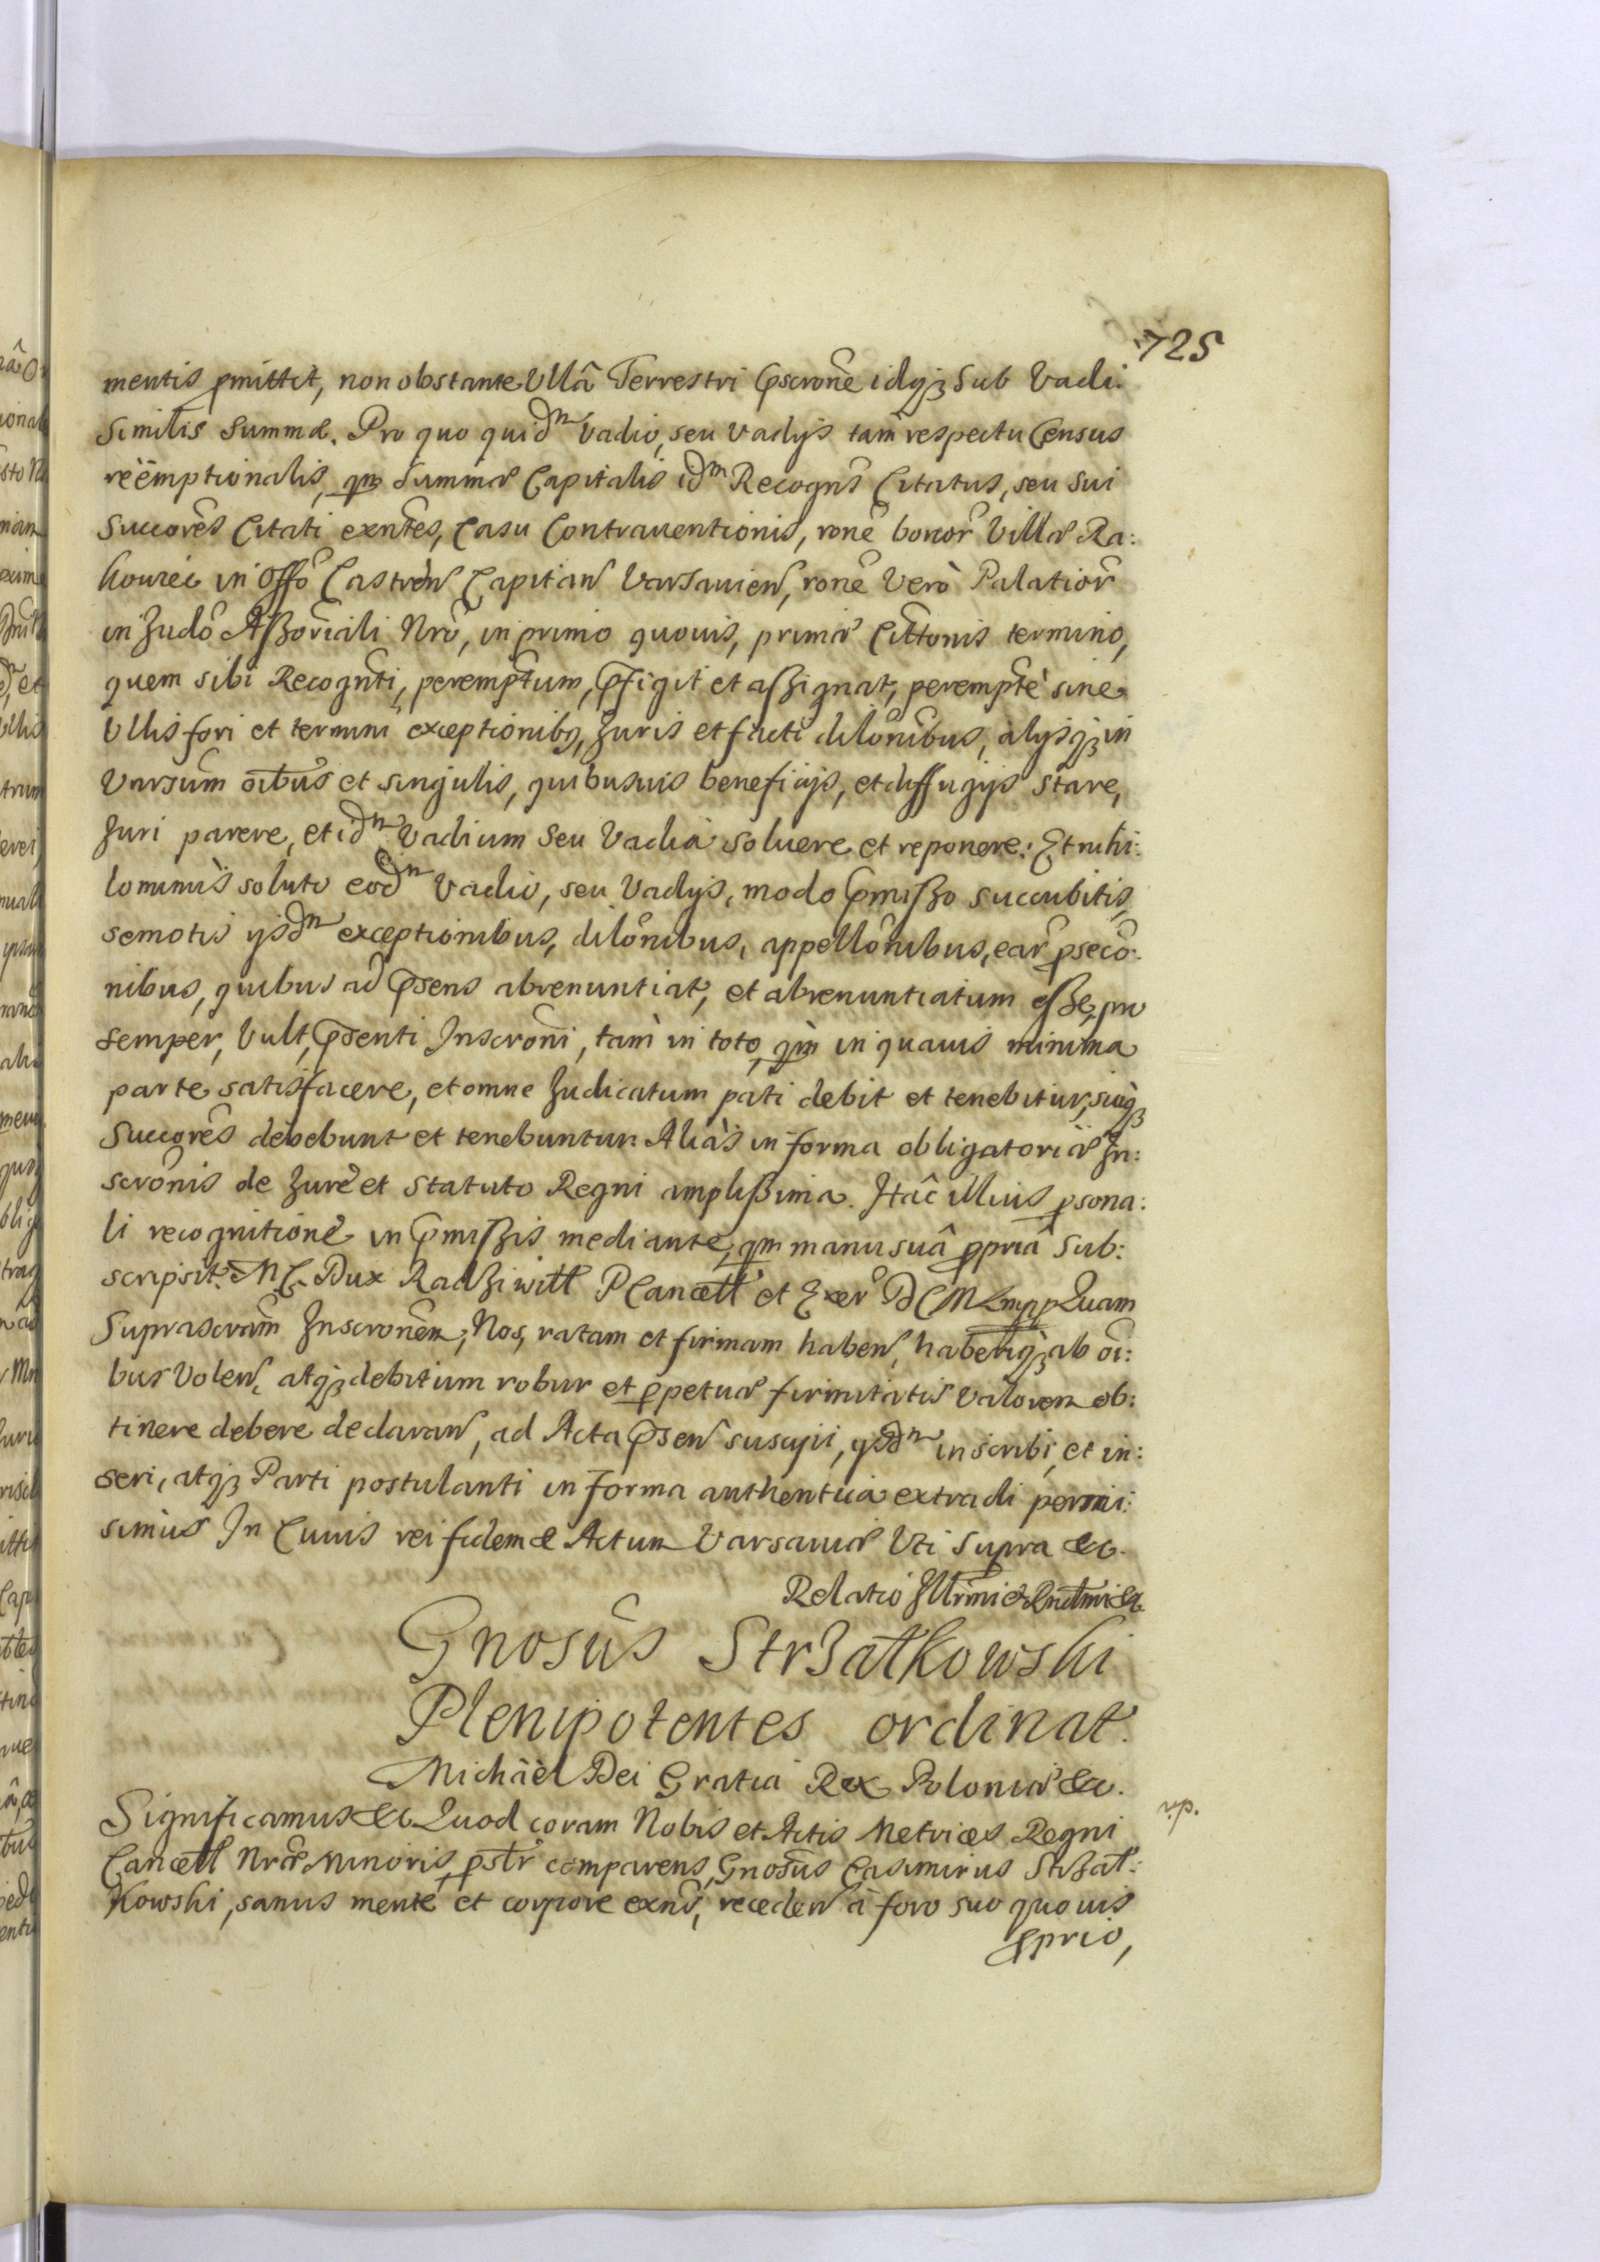 725
mentis pmittit, non obstante Ullâ Terrestri Pscrone idq3 Sub Vadi:
Similis Summæ. Pro quo quidm Vadio, seu Vadijs tàm respectu Census
reëmptionalis, qm Summæ Capitalis idm Recogns Citatus, seu Sui
Succores Citati exntes, Casu Contrauentionis, rone bonor Villæ Ra:
kouiec in Offo Castren Capitan Varsauien, rone Verò Palatior
in Judo Aßoriali Nro, in primo quouis, primæ Cittonis termino,
quem sibi Recognti, peremptum, Pfigit et aßignat, perempte sine
Ullis fori et termini exceptionibq, Juris et facti dilonibus, alijsq3 in
Varsum oibus et singulis, quibusuis beneficijs, et diffugijs stare,
Juri parere, et idm Vadium Seu Vadia soluere et reponere: Et nihi:
lominus soluto eodm Vadio, seu Vadijs, modo Pmißo succubitis,
semotis ijsdm exceptionibus, dilonibus, appellonibus, ear pseco:
nibus, quibus ad Psens abrenuntiat, et abrenuntiatum eße, pro
semper, Vult, Psenti Inscroni, tàm in toto, qm in quauis minima
parte satisfacere, et omne Judicatum pati debit et tenebitur, suiq3
Succores debebunt et tenebuntur. Aliàs in forma obligatoriæ In:
scronis de Jure et Statuto Regni amplißima. Itâc illius psona:
li recognitione in Pmißis mediante, qm manu suâ ppriâ Sub:
scripsit. M C. Dux Radziwill P Cancell et Exer D C M L mpp Quam
Suprascram Inscronem, Nos, ratam et firmam haben, haberiq3 ab oi:
bus Volen, atq3 debitum robur et ppetuæ firmitatis Valorem ob:
tinere debere declaran, ad Acta Psen suscipi, ijsdm inscribi, et in:
seri, atq3 Parti postulanti in forma authentica extradi permi:
simus In Cuius rei fidem & Actum Varsauiæ Uti Supra &c.
Relatio Illrmi & Rndmi &
Gnosus Strzałkowski
Plenipotentes ordinat.
Michäel Dei Gratia Rex Poloniæ &c.
Significamus & Quod coram Nobis et Actis Metrices Regni
r.p.
Cancell Nræ Minoris pstr comparens, Gnosus Casimirus Strzał:
kowski, sanus mente et corpore exns, receden à foro suo quouis
pprio,